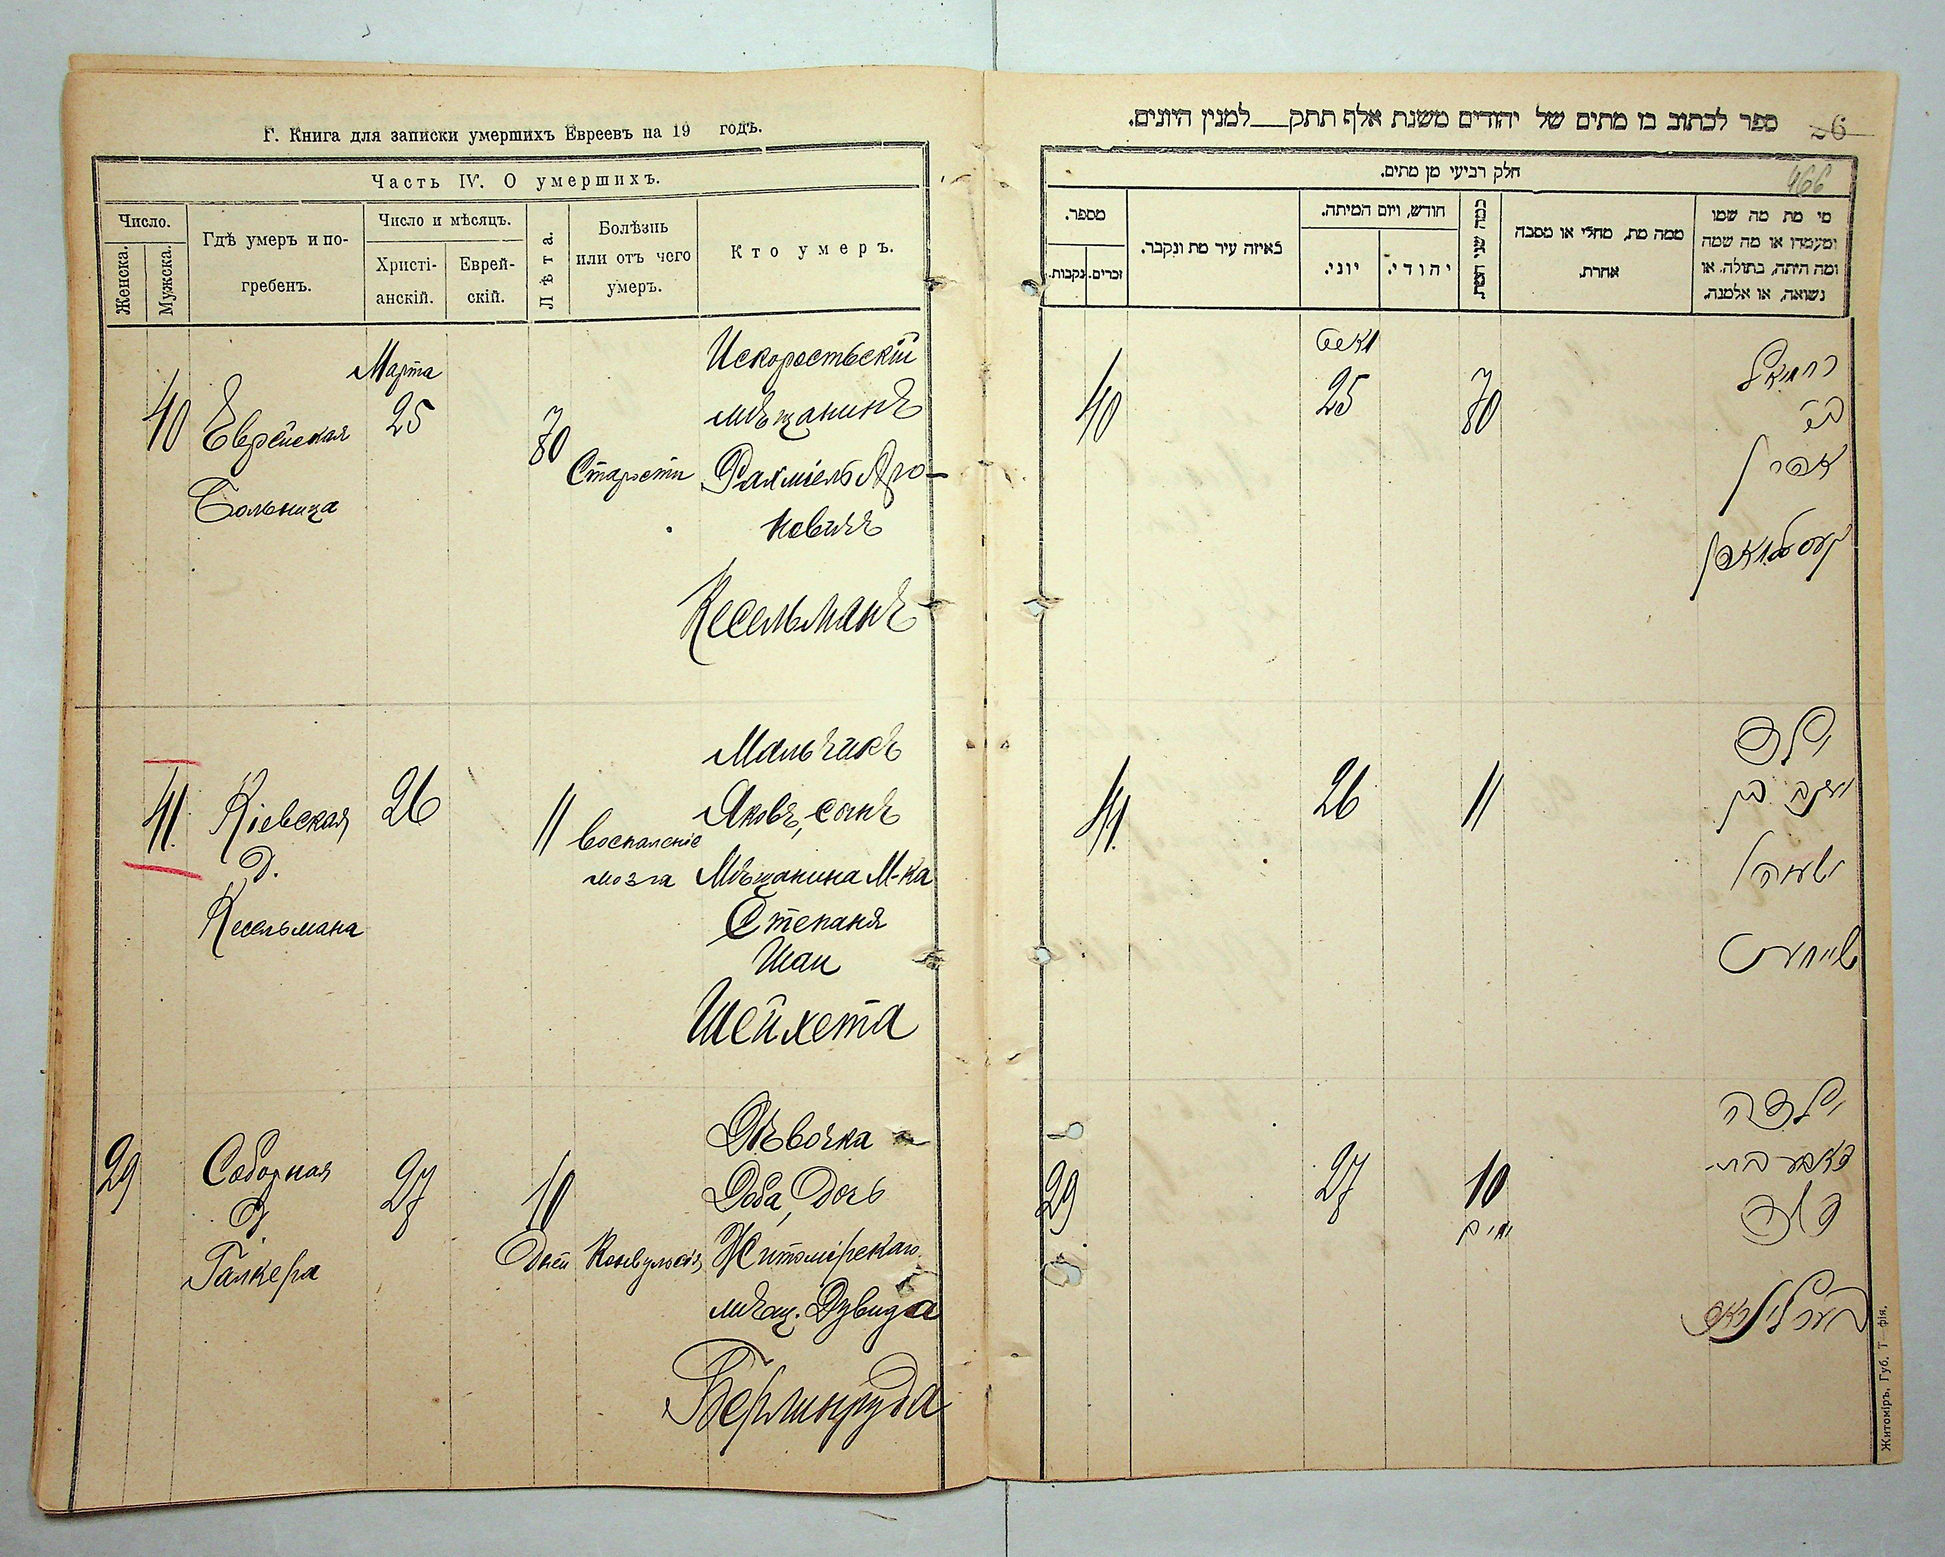 Г. Книга для записки умершихъ Евреевъ на 19 годъ.
Часть IV. О умершихъ.
Число.
Женска.
Мужска.
Гдѣ умеръ и по-
гребенъ.
Число и мѣсяцъ.
Христі-
анскій.
Еврей-
скій.
Лѣта.
Болѣзнь
или отъ чего
умеръ.
Кто умеръ.
40
Еврейская
Больница
Марта
25
70
Старости
Искоростьскій
мѣщанинъ
Рахміель Аро-
новичъ
Кесельманъ
41.
Кіевская
д.
Кесельмана
26
11
воспаленіе
мозга
Мальчикъ
Яковъ, сынъ
Мѣщанина М-ка
Степаня
Шаи
Шейхета
29
Соборная
д.
27
10
дней
Конвульсія
Дѣвочка
Доба, дочь
Житомірскаго
мѣщ. Дувида
ספר לכתוב בו מתים של יהודים משנת אלף תתק למנין היונים.
466
חלק רביעי מן מתים.
מספר.
נקבות.
זכרים.
באיזה עיר מת ונקבר.
חודש, ויום המיתה.
יוני.
יהודי.
כמה שני המת
ממה מת, מחלי או מסבה
אחרת.
מי מת מה שמו
ומעמדו או מה שמה
ומה היתה, בתולה, או
נשואה, או אלמנה.
40
מאסט
25
70
ירחמיאל
בר
אהרן
קעסעלמאן
41.
26
11
ילד
יעקב בן
ישעיהו
שייחעט
29
27
10
ימים
ילדה
דאבע בת
דוד
Житоміръ, Губ. Т—фія.